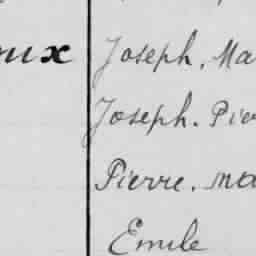 Joseph. Ma
ux Joseph. Pier
Pierre. Ma
Emile